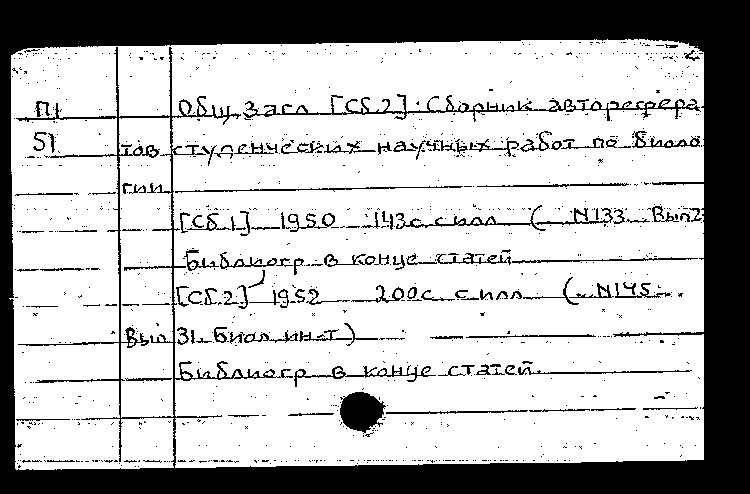 П1 Общ. загл [Сб.2]: Сборник авторефера
51 тов студенческих научных работ по биоло
гии
[Сб.1] 1950 143с с илл (.. N133 Вып 2
Библиогр в конце статей
[Сб.2] 1952 200с. с илл (.. N145.
Вып 31. Биол. ин-т)
Библиогр в конце статей.